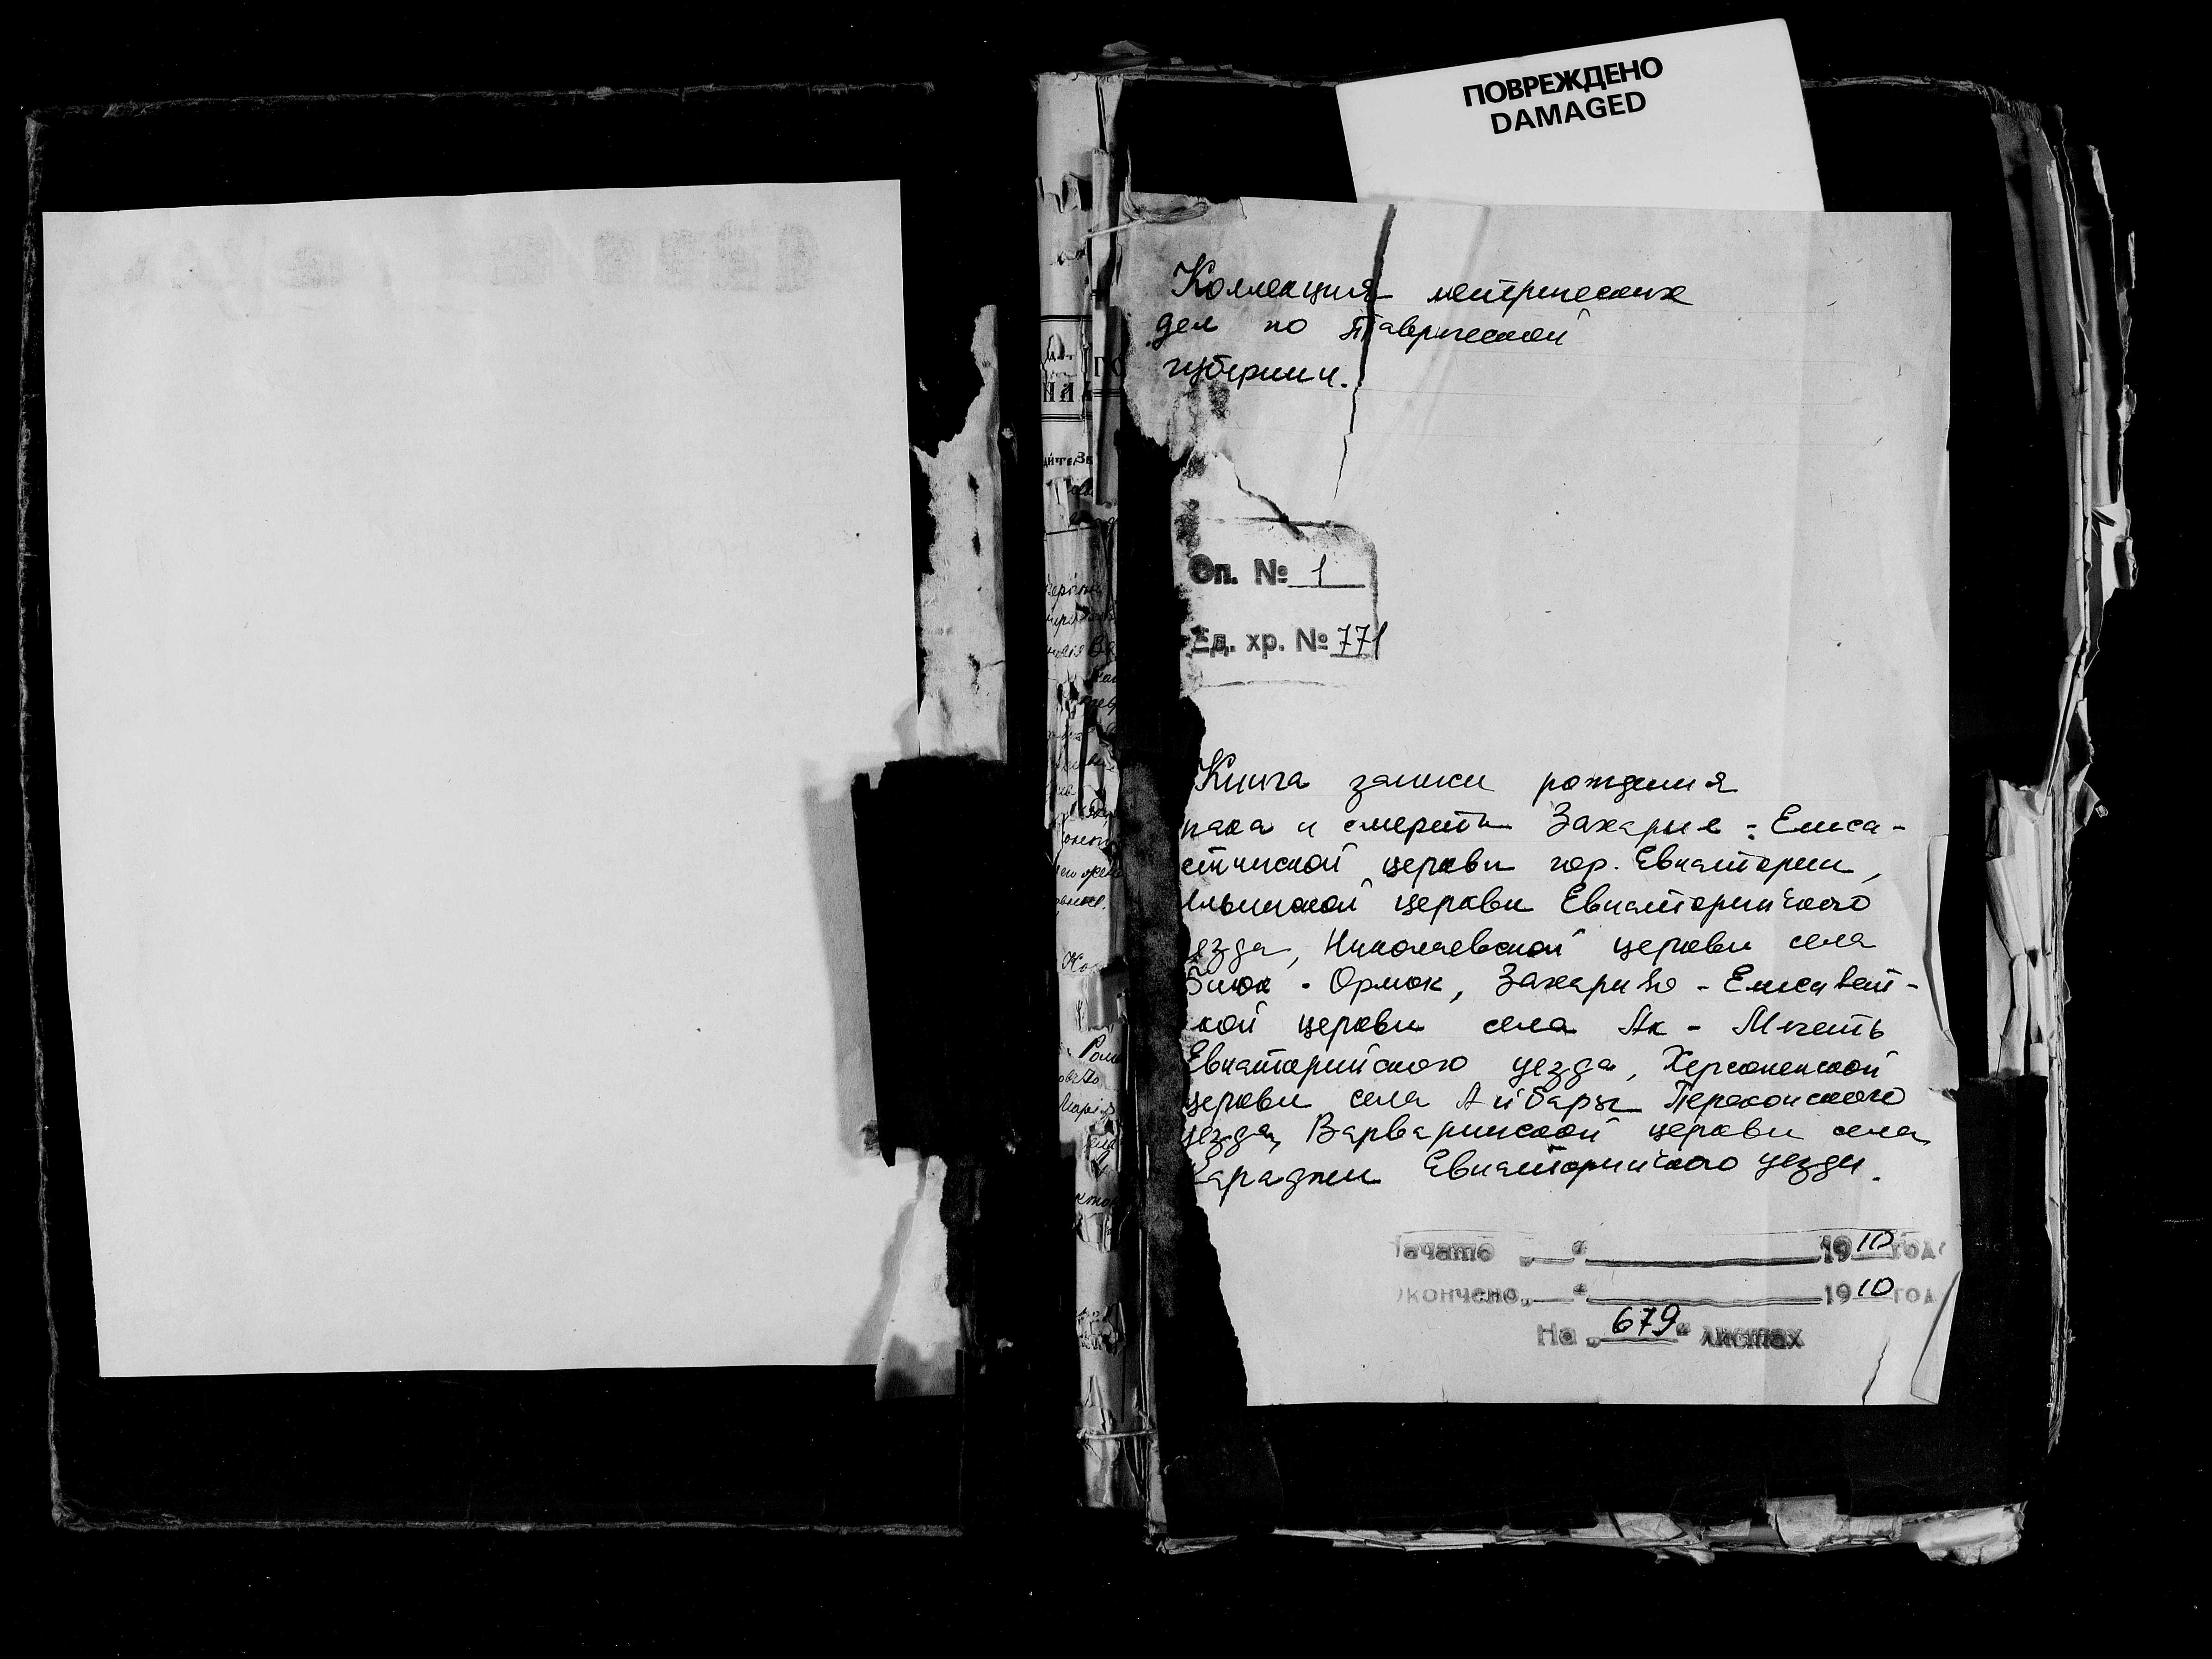 ПОВРЕЖДЕНО
DAMAGED
Коллекция метрических
дел по Таврической
губернии.
Оп. № 1
Ед. хр. № 771
Книга записи рождения
рака и смерти Захарие-Елиса-
етинской церкви гор. Евпатории,
Ильинской церкви Евпаторийского
уезда, Николаевской церкви села
Биюк-Ормок, Захариво-Елисавет-
кой церкви села Ак-Мечеть
Евпаторийского уезда, Херсонеской
церкви села Айбары Перекопского
уезда, Варваринской церкви села
Караджи Евпаторийского уезда.
Начато „ “ 1910 года
Окончено „ “ 1910 год
На „679“ листах